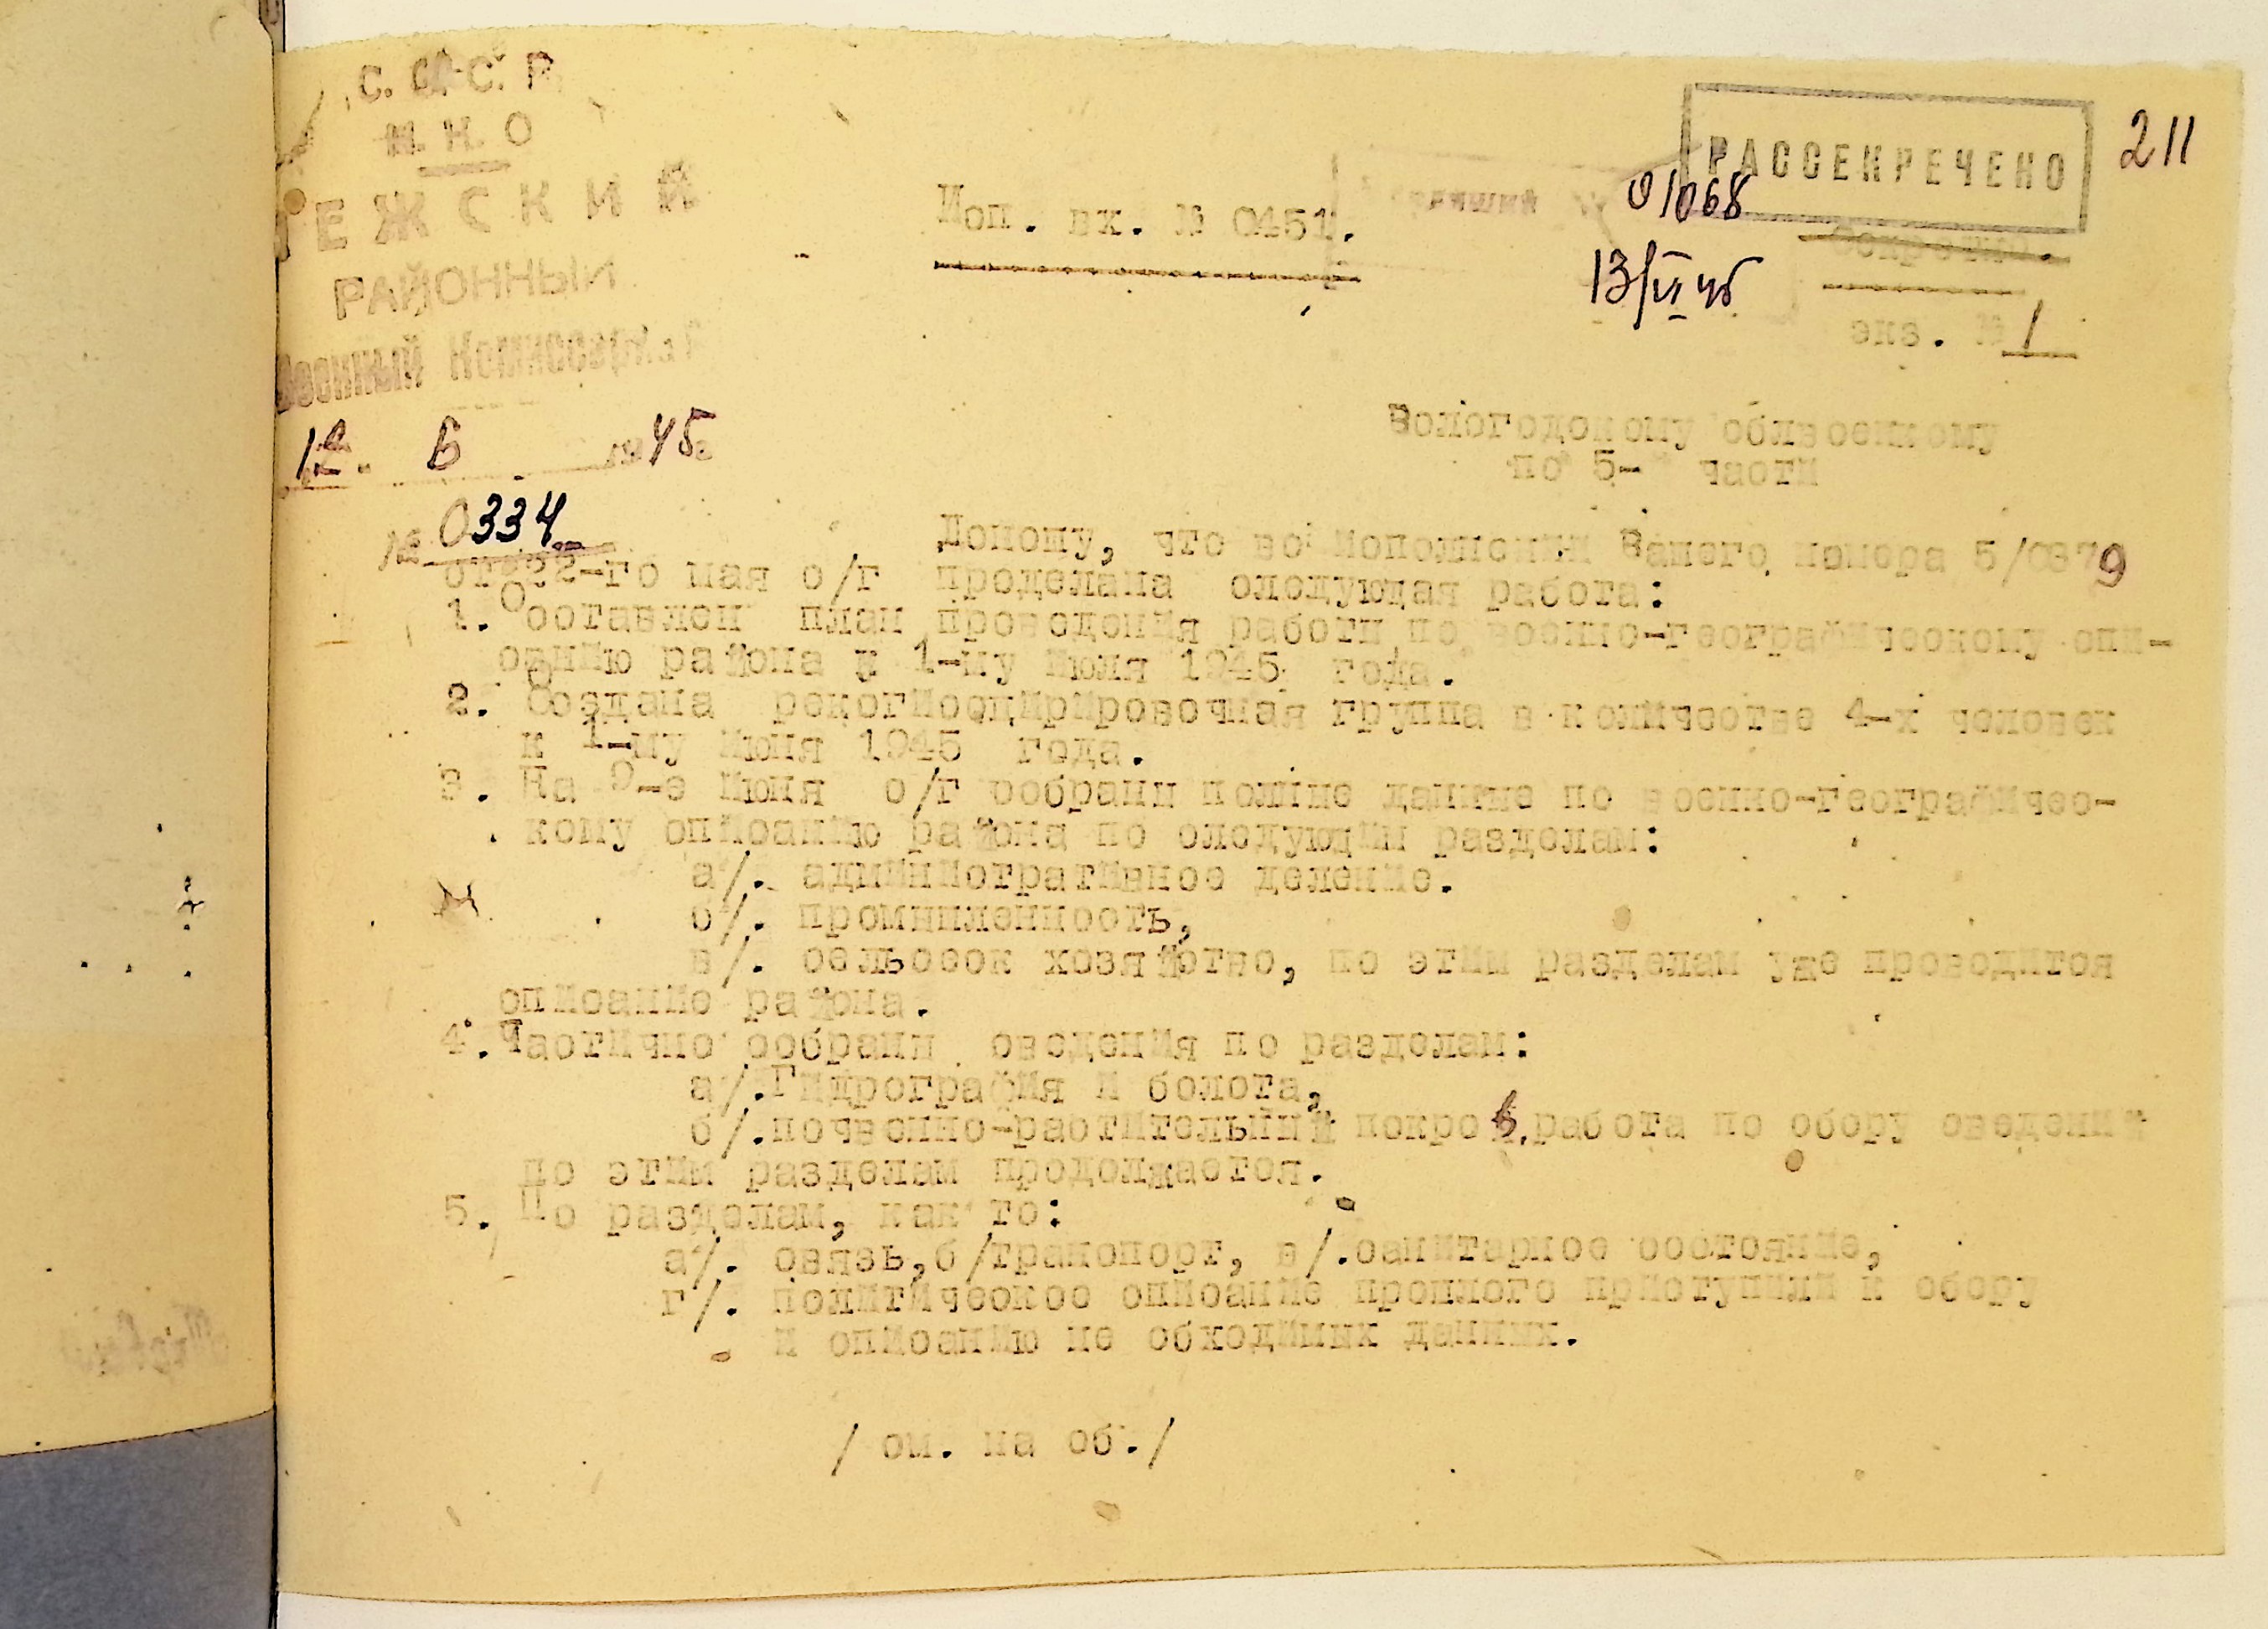 С. С. С. Р.
Н. К. О
ЕЖСКИЙ
РАЙОННЫЙ
Военный Комиссариат
12. 6 1945г
№ 0334
Исп. вх. № 0451.
РАССЕКРЕЧЕНО
211
01068
13/VI 45
Секретно.
экз. № 1
Вологодскому облвоенкому
по 5-й части
Доношу, что во исполнении Вашего номера 5/0879
от 22-го мая с/г проделана следующая работа:
1. Составлен план проведения работы по военно-географическому опи-
санию района к 1-му июля 1945 года.
2. Создана рекогносцирировочная группа в количестве 4-х человек
к 1-му июня 1945 года.
3. На 9-е июня с/г собраны полные данные по военно-географичес-
кому описанию района по следующим разделам:
а/. административное деление.
б/. промышленность,
в/. сельсеок хозяйство, по этим разделам уже проводится
описание района.
4. Частично собраны сведения по разделам:
а/. Гидрография и болота,
б/. почвенно-растительный покров, работа по сбору сведений
по этим разделам продолжается.
5. По разделам, как то:
а/. связь, б/транспорт, в/. санитарное состояние,
г/. политическое описание прошлого приступили к сбору
и описанию не обходимых данных.
/ см. на об./